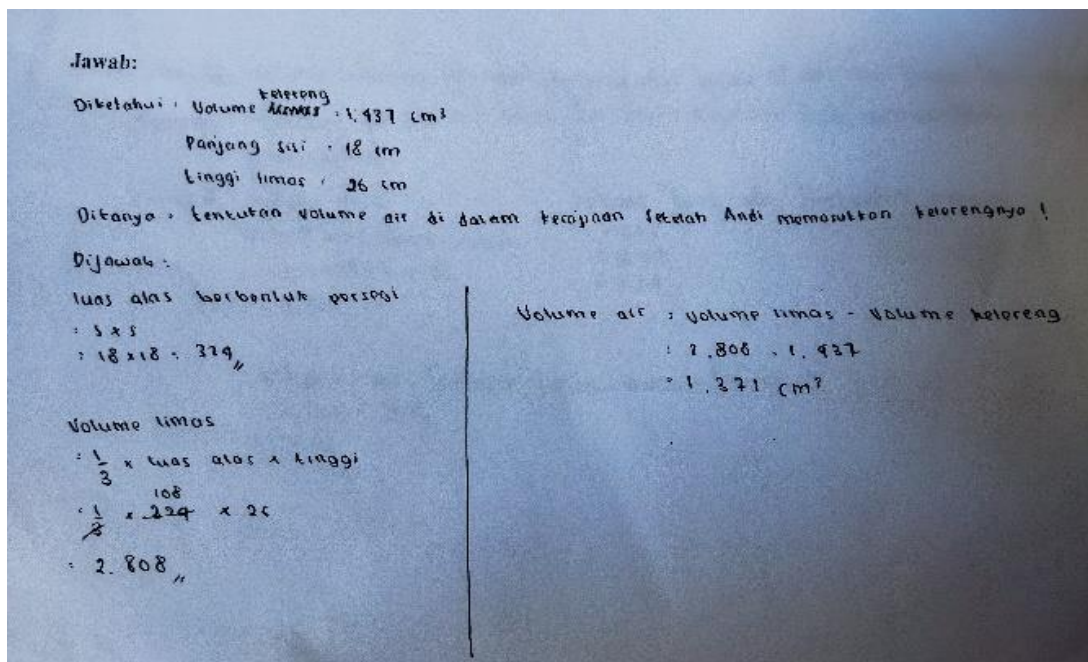 Jawab:
Diketahui : Volume kelereng : 1.437 cm³
Panjang sisi : 18 cm
tinggi limas : 26 cm
Ditanya : tentukan volume air di dalam kerajinan setelah Andi memasukkan kelerengnya !
Dijawab :
luas alas berbentuk persegi
: s x s
: 18 x 18 = 324,,
Volume limas
: 1/3 x luas alas x tinggi
108
: 1/3 x 324 x 26
: 2.808,,
Volume air : volume limas - Volume kelereng
: 2.808 - 1.437
= 1.371 cm³